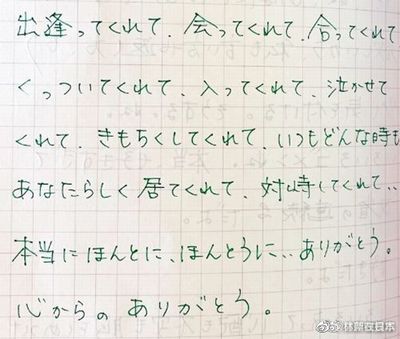 出逢ってくれて、会ってくれて、合ってくれて
くっついてくれて、入ってくれて、泣かせて
くれて、きもちくしてくれて、いつもどんな時も
あなたらしく居てくれて、対峙してくれて‥
本当にほんとに、ほんとうに‥ありがとう。
心からの ありがとう。
@林萍在日本